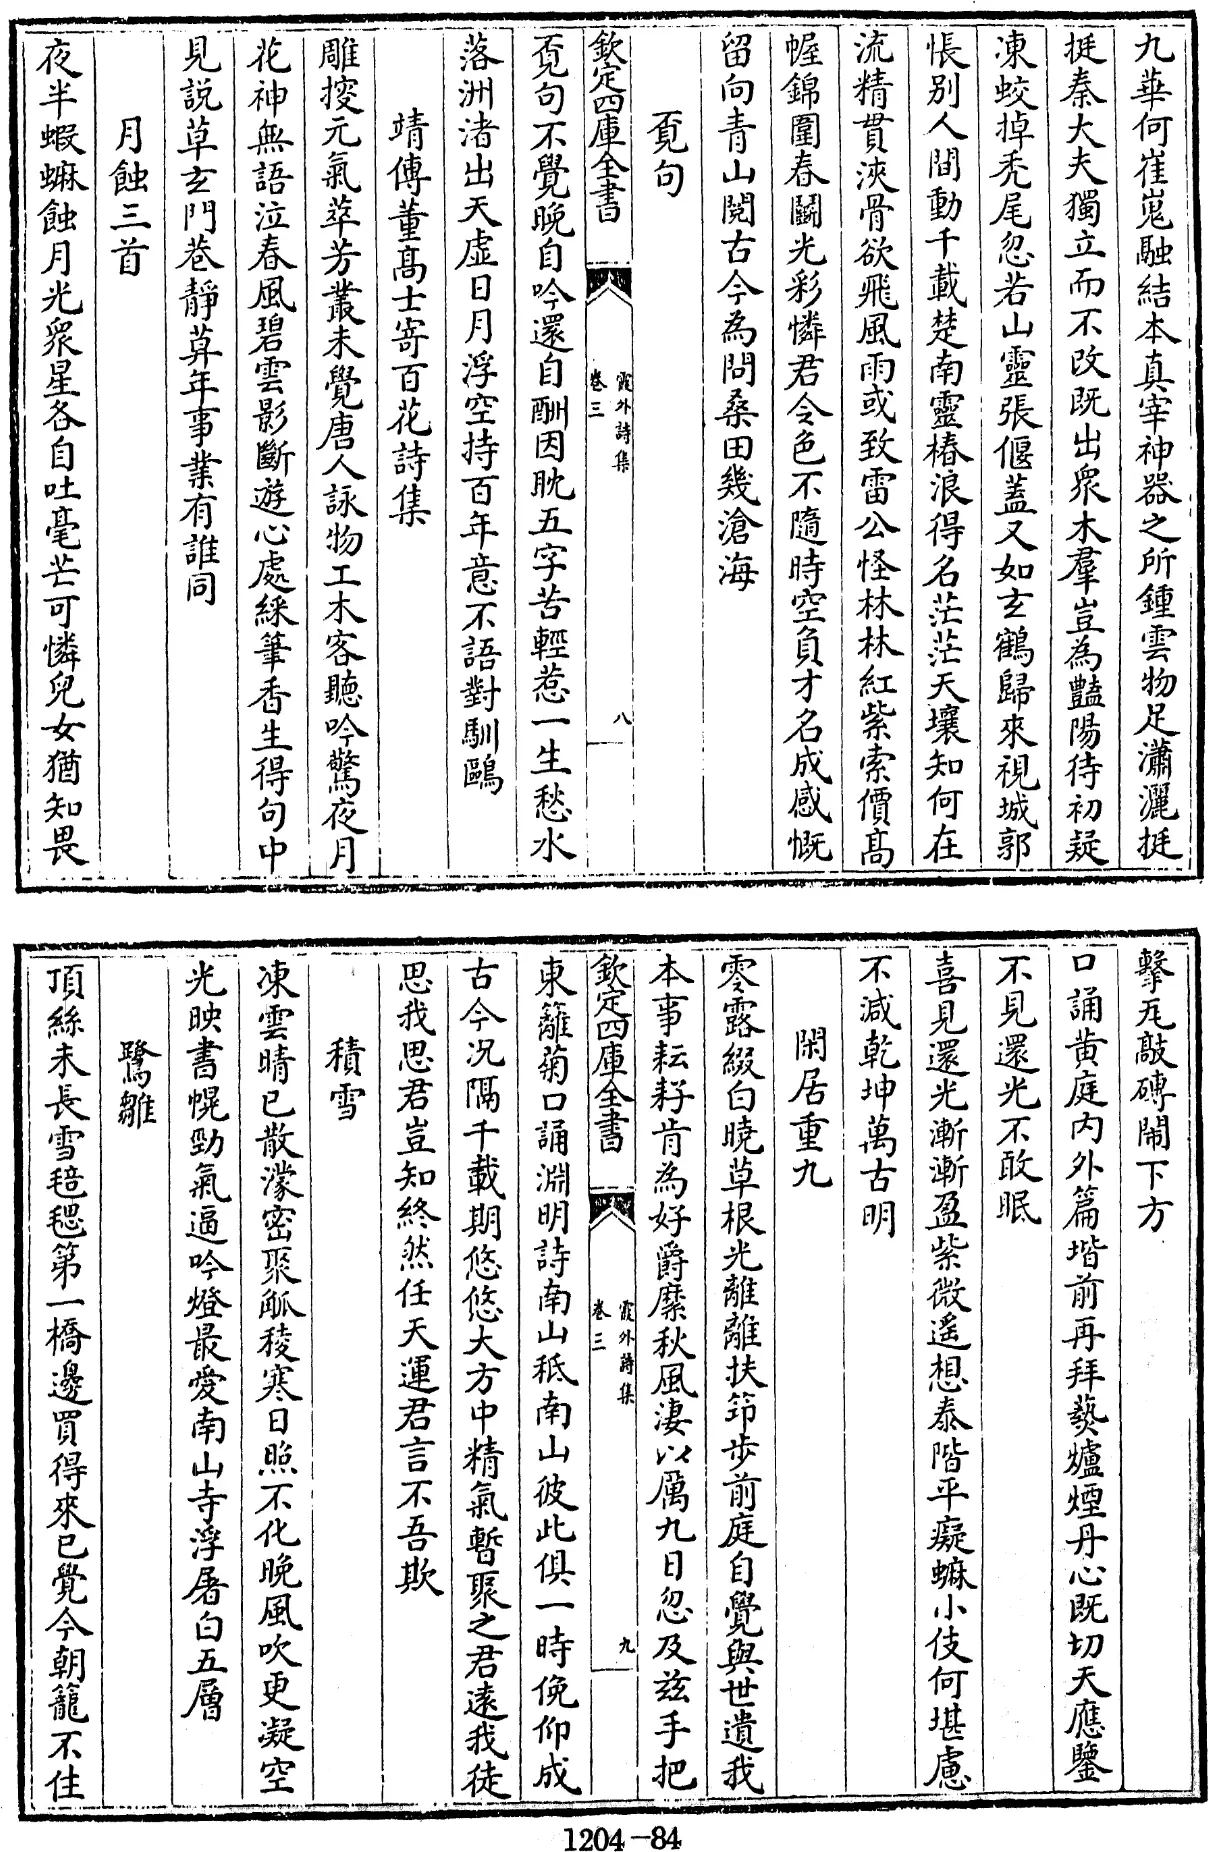 九華何崔嵬融結本真宰神器之所鍾雲物足瀟灑挺
挺秦大夫獨立而不改既出衆木羣豈為豔陽待初疑
凍蛟掉禿尾忽若山靈張偃蓋又如玄鶴歸來視城郭
悵别人間動千載楚南靈椿浪得名茫茫天壤知何在
流精貫浹骨欲飛風雨或致雷公怪林林紅紫索價高
幄錦圍春鬬光彩憐君令色不隨時空負才名成感慨
留向青山閱古今為問桑田幾滄海
覔句
欽定四庫全書
霞外詩集
卷三
八
覔句不覺晚自吟還自酬因耽五字苦輕惹一生愁水
落洲渚出天虛日月浮空持百年意不語對馴鷗
靖傳董高士寄百花詩集
雕搜元氣萃芳叢未覺唐人詠物工木客聽吟驚夜月
花神無語泣春風碧雲影斷遊心處綵筆香生得句中
見說草玄門巷靜草年事業有誰同
月蝕三首
夜半蝦蟆蝕月光衆星各自吐毫芒可憐兒女猶知畏
擊瓦敲磚鬧下方
口誦黄庭内外篇堦前再拜爇爐煙丹心既切天應鑒
不見還光不敢眠
喜見還光漸漸盈紫微遙想泰階平癡蟆小伎何堪慮
不減乾坤萬古明
閑居重九
零露綴白曉草根光離離扶筇步前庭自覺與世遺我
本事耘耔肯為好爵縻秋風淒以厲九日忽及兹手把
欽定四庫全書
霞外詩集
卷三
九
東籬菊口誦淵明詩南山秪南山彼此俱一時俛仰成
古今况隔千載期悠悠大方中精氣暫聚之君逺我徒
思我思君豈知終然任天運君言不吾欺
積雪
凍雲晴已散濛密聚觚稜寒日照不化晚風吹更凝空
光映書幌勁氣逼吟燈最愛南山寺浮屠白五層
鷺雛
頂絲未長雪毰毸第一橋邊買得來已覺今朝籠不住
1204-84